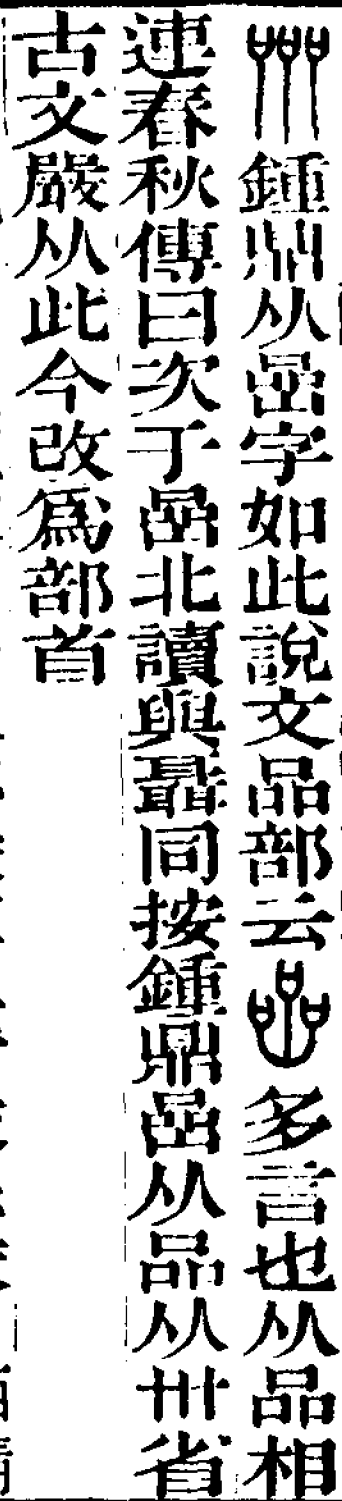 鍾鼎从嵒字如此說文品部云嵒多言也从品相
連春秋傳曰次于嵒北讀與聶同按鍾鼎嵒从品从卌省
古文嚴从此今改爲部首